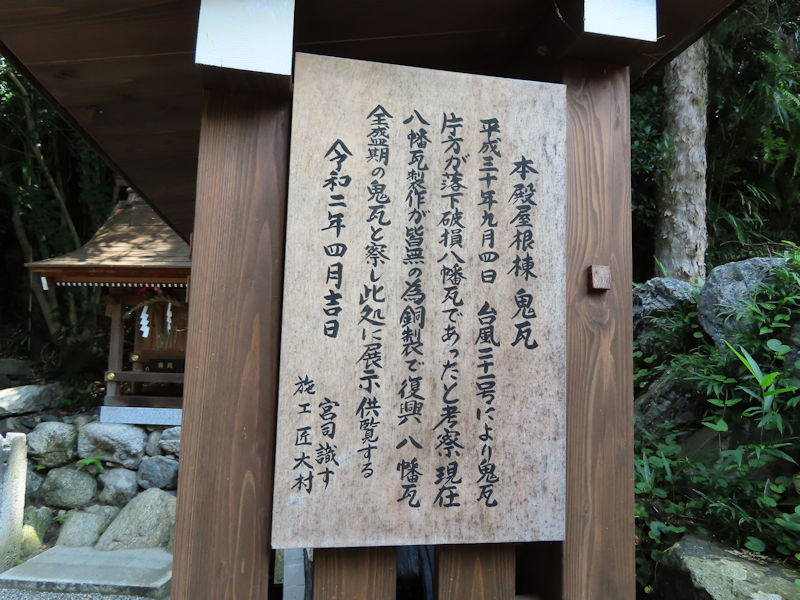 本殿屋根棟 鬼瓦
平成三十年九月四日 台風二十一号により鬼瓦
片方が落下破損八幡瓦であったと考察現在
八幡瓦製作が皆無の為銅製で復興 八幡瓦
全盛期の鬼瓦と察し此処に展示供覧する
令和二年四月吉日
宮司識す
施工 匠大村